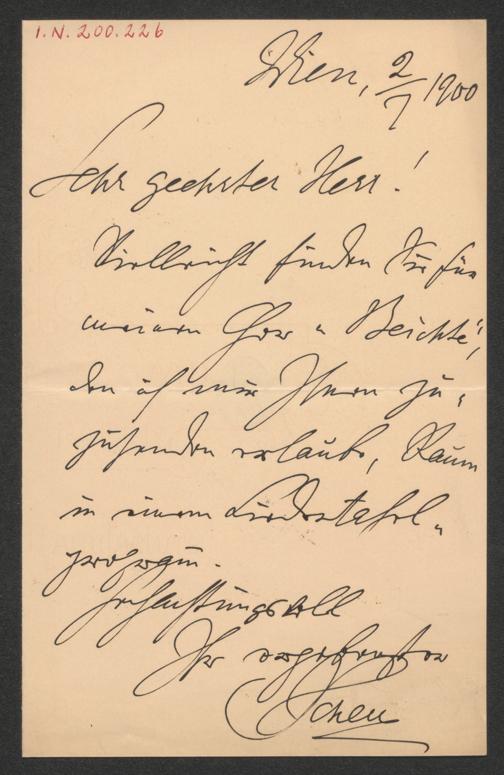 I.N. 200.226
Wien, 2/7 1900
Sehr geehrter Herr!
Vielleicht finden Sie für
meinen Chor „Beichte“,
den ich mir Ihnen zu-
zusenden erlaube, Raum
in einem Liedertafel-
programm.
Hochachtungsvoll
Ihr ergebenster
JScheu